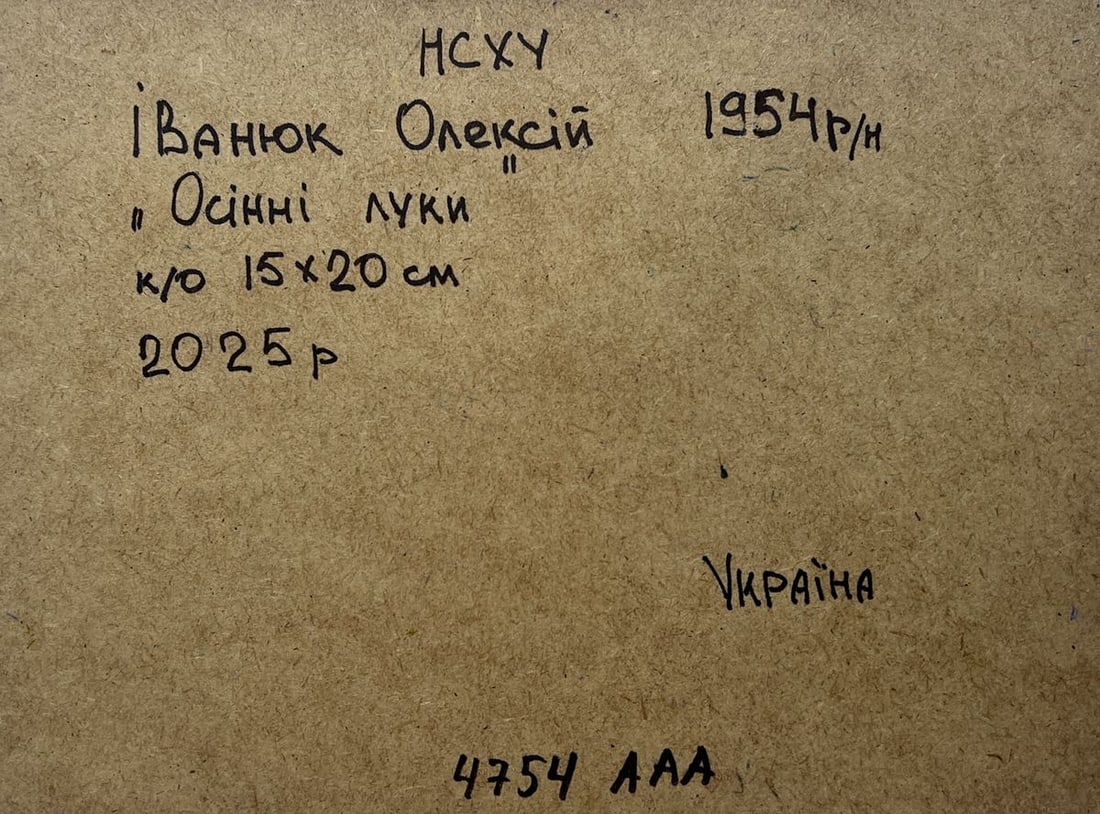 НСХУ
Іванюк Олексій 1954 р/н
„Осінні луки"
к/о 15х20 см
2025 р
Україна
4754 ААА